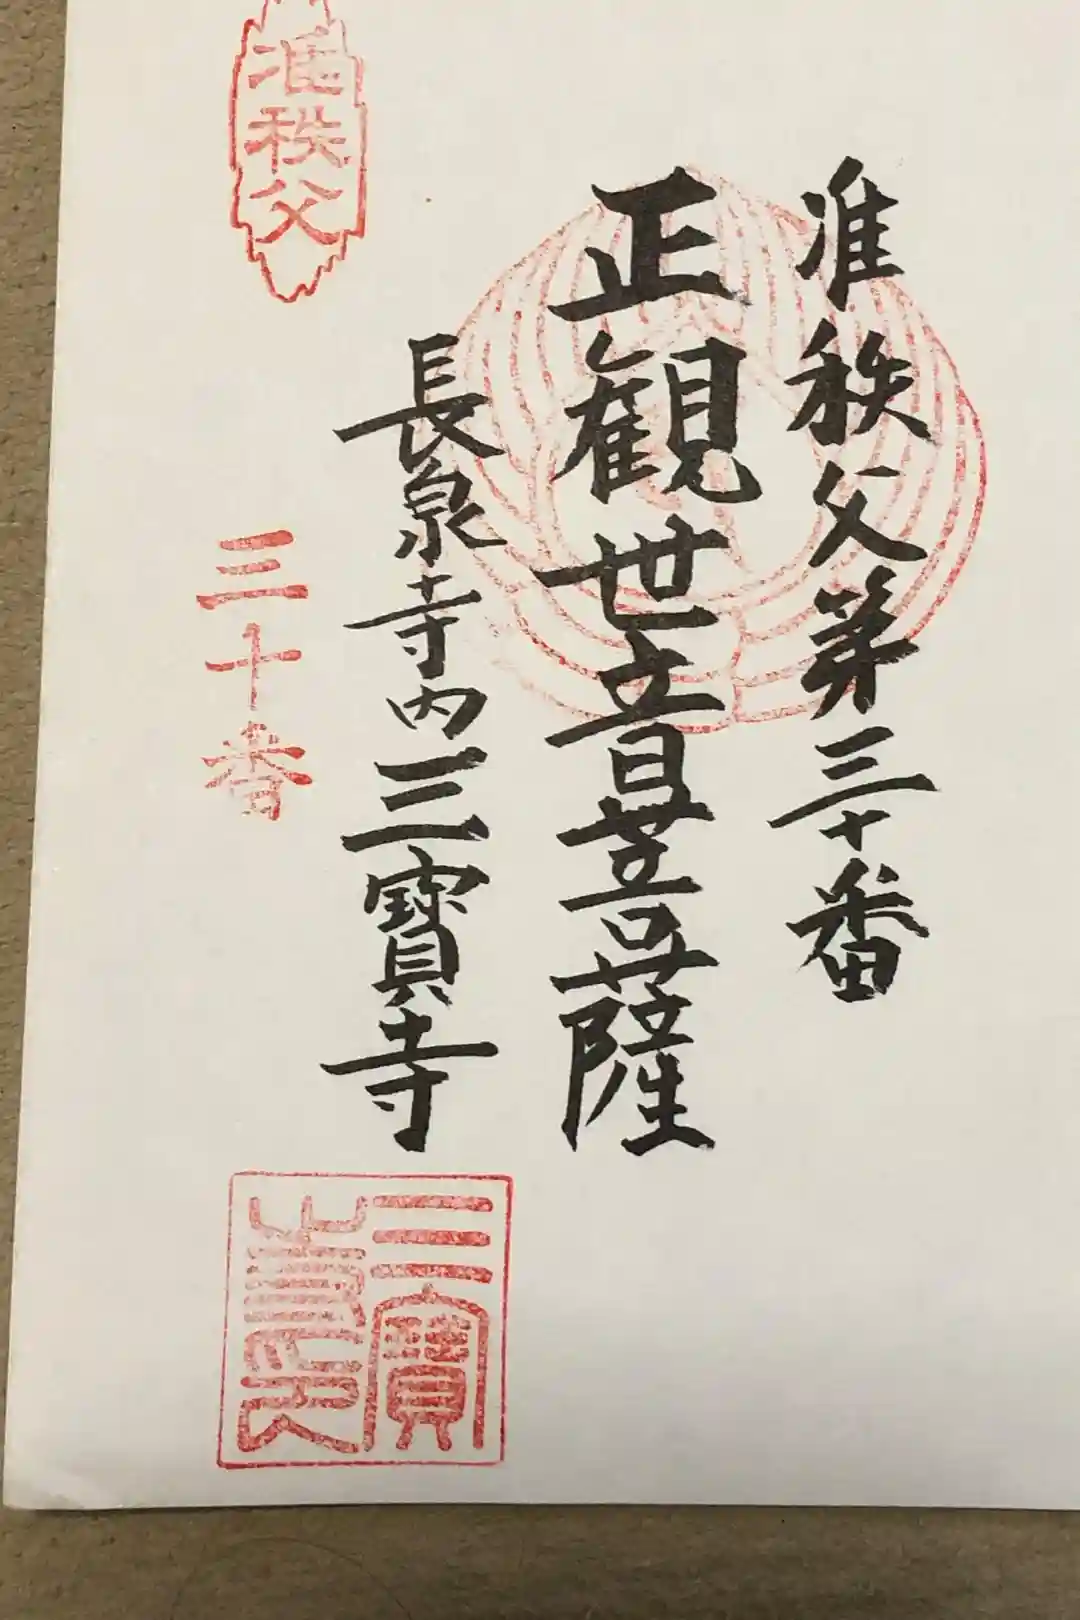 准秩父第三十番
正観世音菩薩
長泉寺内三寳寺
准秩父
三十番
三寳